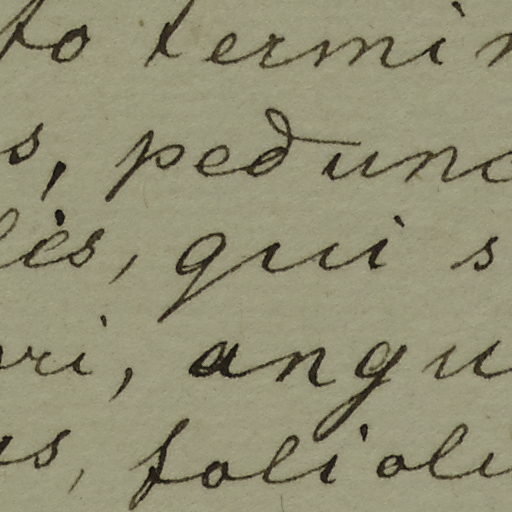 to termin
s, pedunc
les, qui s
ri, angu
us, folioli